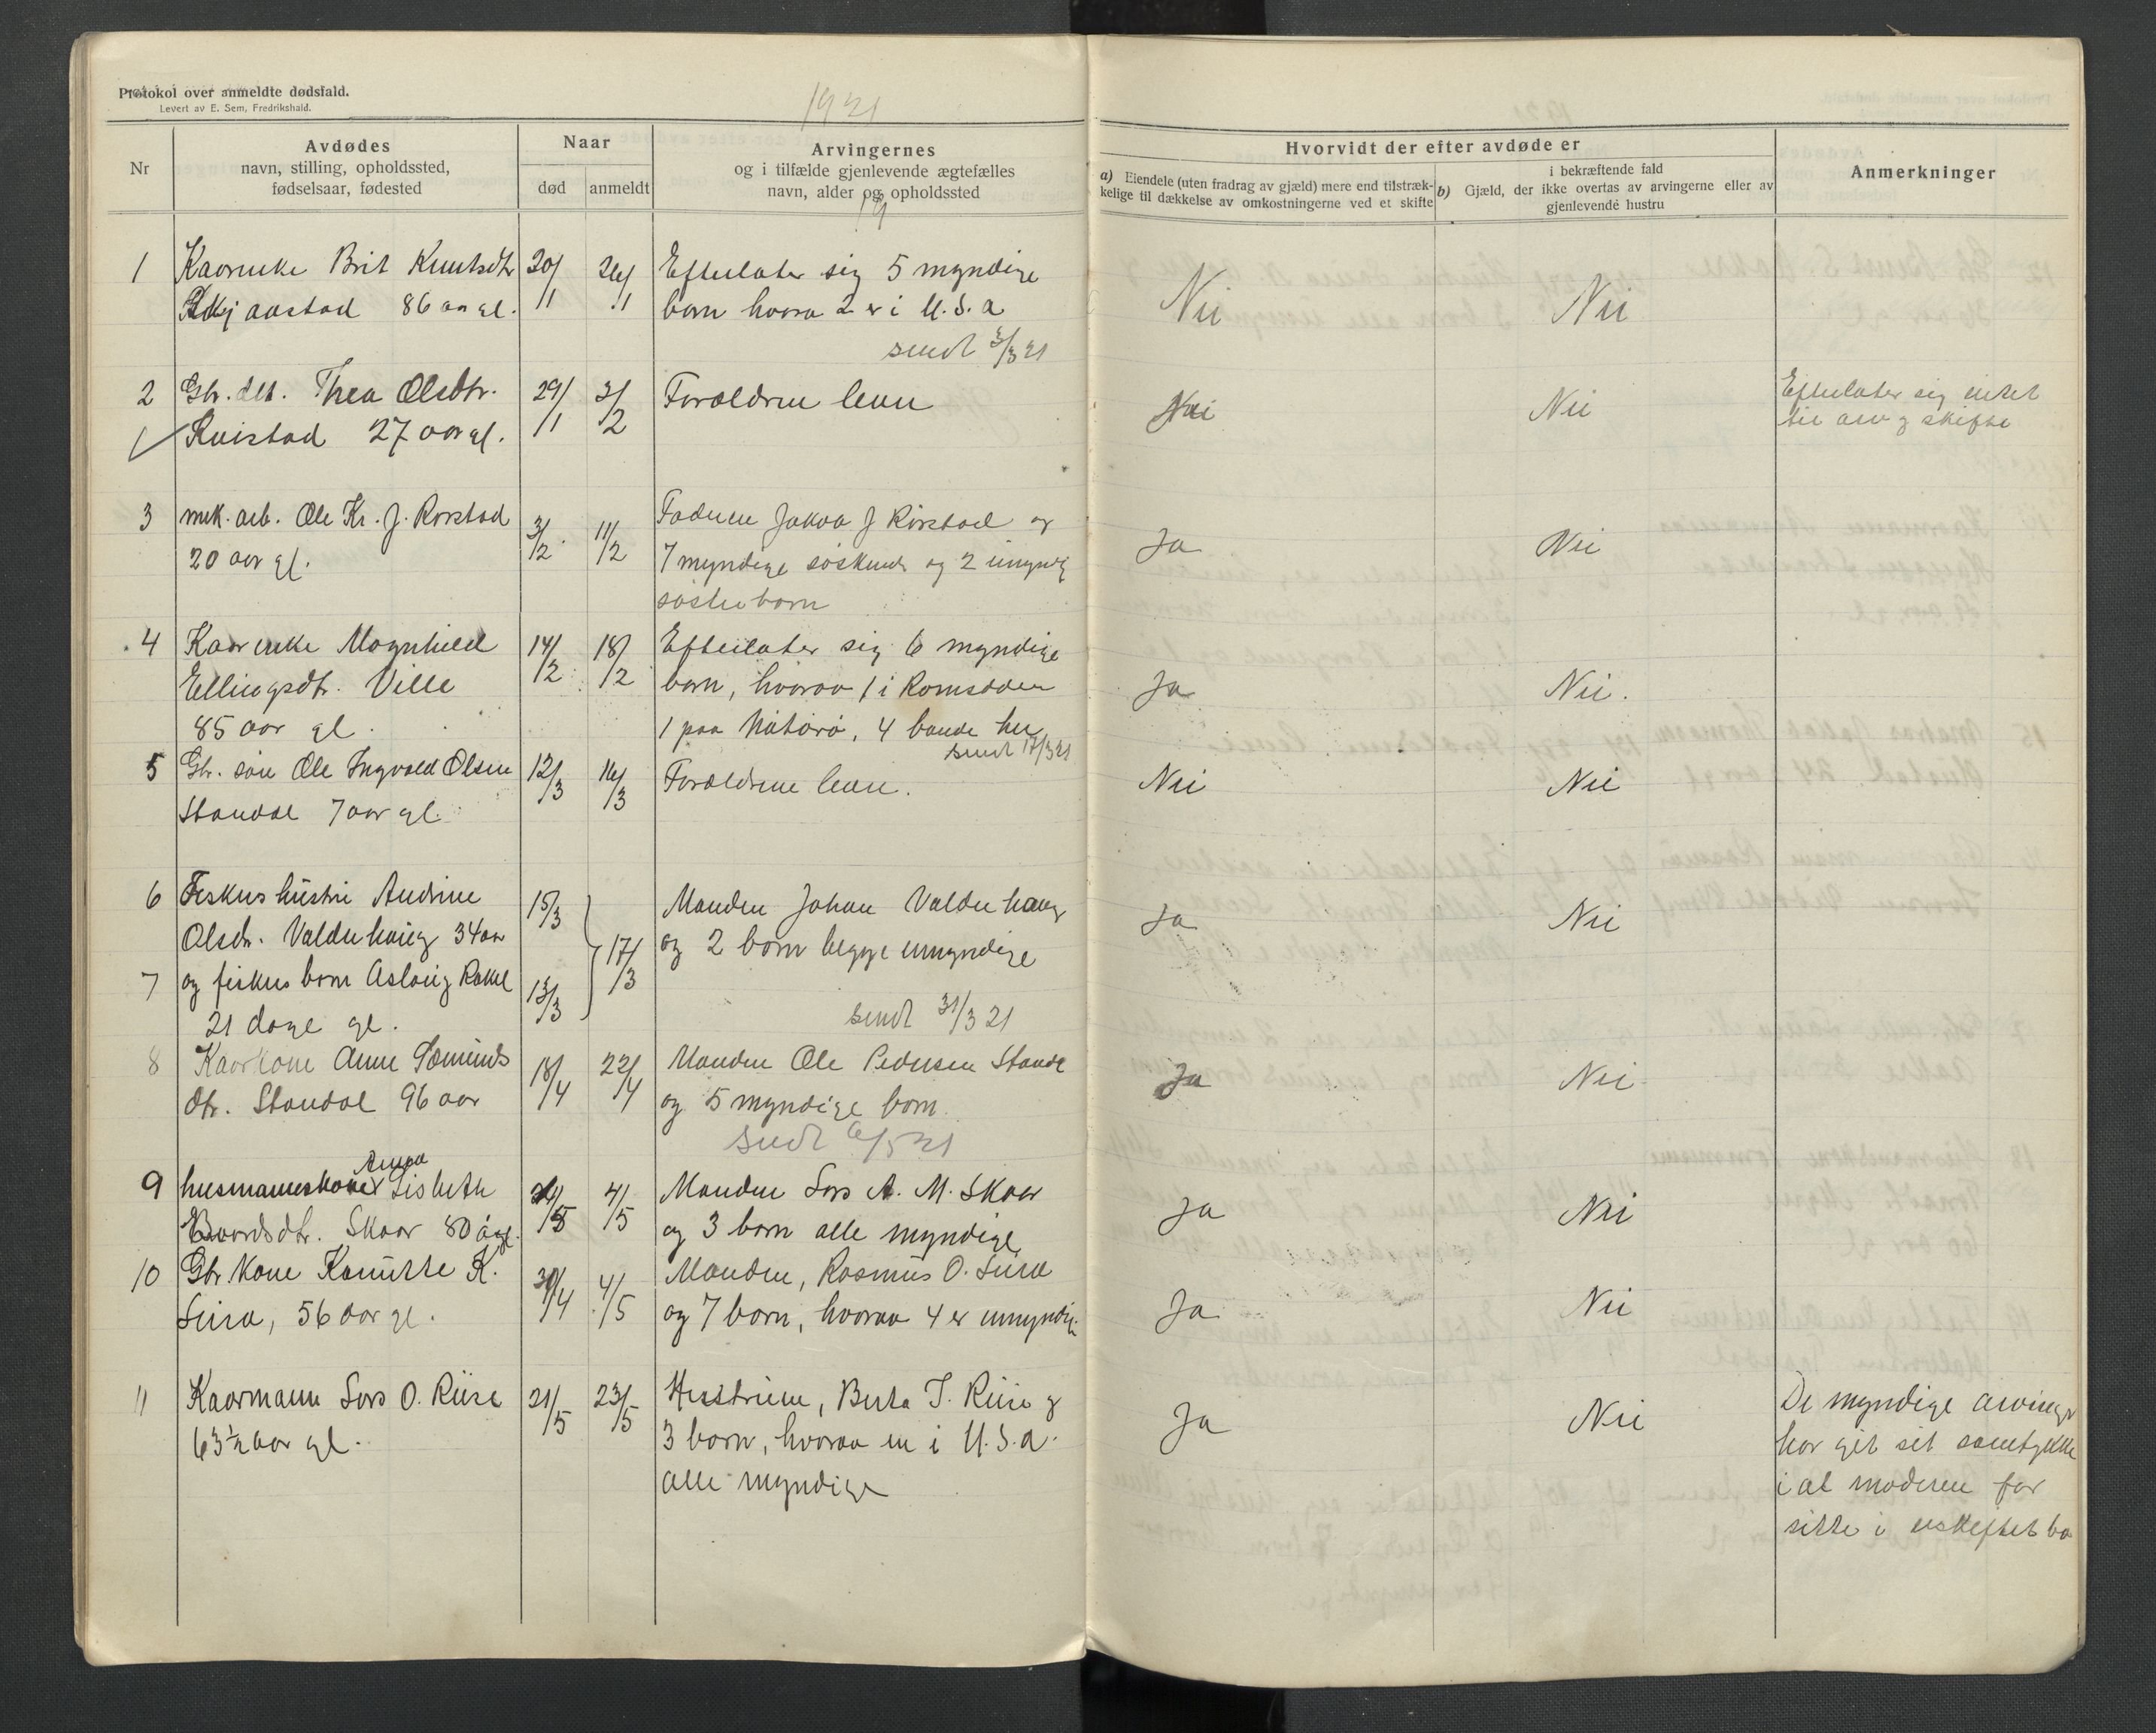 Protokol over anmeldte dødsfald.
Levert av E. Sem, Fredrikshald.
1921
Nr
Avdødes
navn, stilling, opholdssted,
fødselsaar, fødested
Naar
død
anmeldt
Arvingernes
og i tilfælde gjenlevende ægtefælles
navn, alder og opholdssted
Hvorvidt der efter avdøde er
a) Eiendele (uten fradrag av gjæld) mere end tilstræk-
kelige til dækkelse av omkostningerne ved et skifte
i bekræftende fald
b) Gjæld, der ikke overtas av arvingerne eller av
gjenlevende hustru
Anmerkninger
1 Kaarenke Brit Knutsdtr 20/1 26/1 Efterlater sig 5 myndige
aastad 86 aar gl. børn hvora 2 er i U.S.a Nei Nei
sendt 3/3 21
2 Gbr. dtr. Thea Olsdtr. 29/1 3/2 Forældrene lever Nei Nei Efterlater sig intet
Kvistad 27 aar gl. til arv og skifte
3 mek. arb. Ole Kr. J. Rørstad 3/2 11/2 Faderen Jakob J Rørstad og Ja Nei
20 aar gl. 7 myndige søskende og 2 umyndig
søsterbørn
4 Kaarenke Magnhild 14/2 18/2 Efterlater sig 6 myndige
Ellingsdtr. Ville børn, hvorav 1 i Romsdalen Ja Nei.
85 aar gl. 1 paa, 4 her
sendt 17/3 21
5 Gbr. søn Ole Ingvald Olsen 12/3 16/3 Forældrene lever. Nei Nei
Standal 7 aar gl.
6 Fiskers hustru Andrine 15/3 Manden Johan Valderhaug Ja Nei
Olsdr. Valderhaug 34 aar 17/3 og 2 børn begge umyndige
7 og fiskers barn Aslaug Rakel 13/3
21 dage gl. sendt 31/3 21
8 Kaarkone Anne Sæmunds 18/4 22/4 Manden Ole Pedersen Standal Ja Nei
dtr. Standal 96 aar og 5 myndige børn.
sendt 6/5 21
Anna
9 husmandskone Lisbeth 4/5 Manden Lars A. M. Skaar Ja Nei
Baardsdtr. Skaar 80 å gl. og 3 børn alle myndige
10 Gbr. kone Karnitte K. 30/4 4/5 Manden, Rasmus O. Ja Nei
56 aar gl. og 7 børn, hvorav 4 er umyndig.
11 Kaarmann Lars O. Riise 21/5 23/5 Hustruen, Berta J. Riise og Ja Nei De myndige arvinger
63½ aar gl. 3 børn, hvorav en i U.S.a. har git sit samtykke
alle myndige i at moderen får
sitte i uskiftet bo